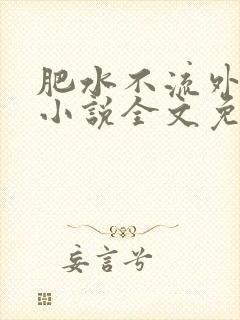 肥水不流外
小说全文免
妄言兮